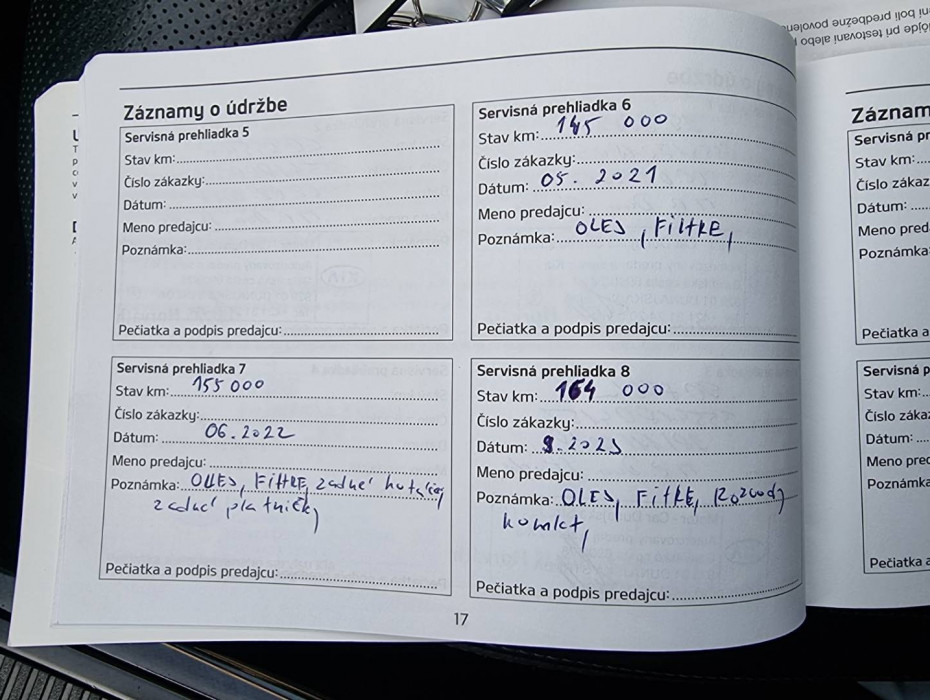 ni boli predbežne povolen
ôjde pri testovaní alebo
Záznamy o údržbe
Servisná prehliadka 5
Stav km:
Číslo zákazky:
Dátum:
Meno predajcu:
Poznámka:
Pečiatka a podpis predajcu:
Servisná prehliadka 6
Stav km: 145 000
Číslo zákazky:
Dátum: 05. 2021
Meno predajcu:
Poznámka: OLEJ, FiltRE,
Pečiatka a podpis predajcu:
Servisná prehliadka 7
Stav km: 155 000
Číslo zákazky:
Dátum: 06. 2022
Meno predajcu:
Poznámka: OLEJ, FiltRE, zadné
zadné platničky
Pečiatka a podpis predajcu:
Servisná prehliadka 8
Stav km: 164 000
Číslo zákazky:
Dátum: 9. 2023
Meno predajcu:
Poznámka: OLEJ, FiltRE, Rozvody
komlet,
Pečiatka a podpis predajcu:
17
Záznam
Servisná pr
Stav km:
Číslo zákaz
Dátum:
Meno pred
Poznámka
Pečiatka a
Servisná p
Stav km:
Číslo záka
Dátum:
Meno pred
Poznámka
Pečiatka a